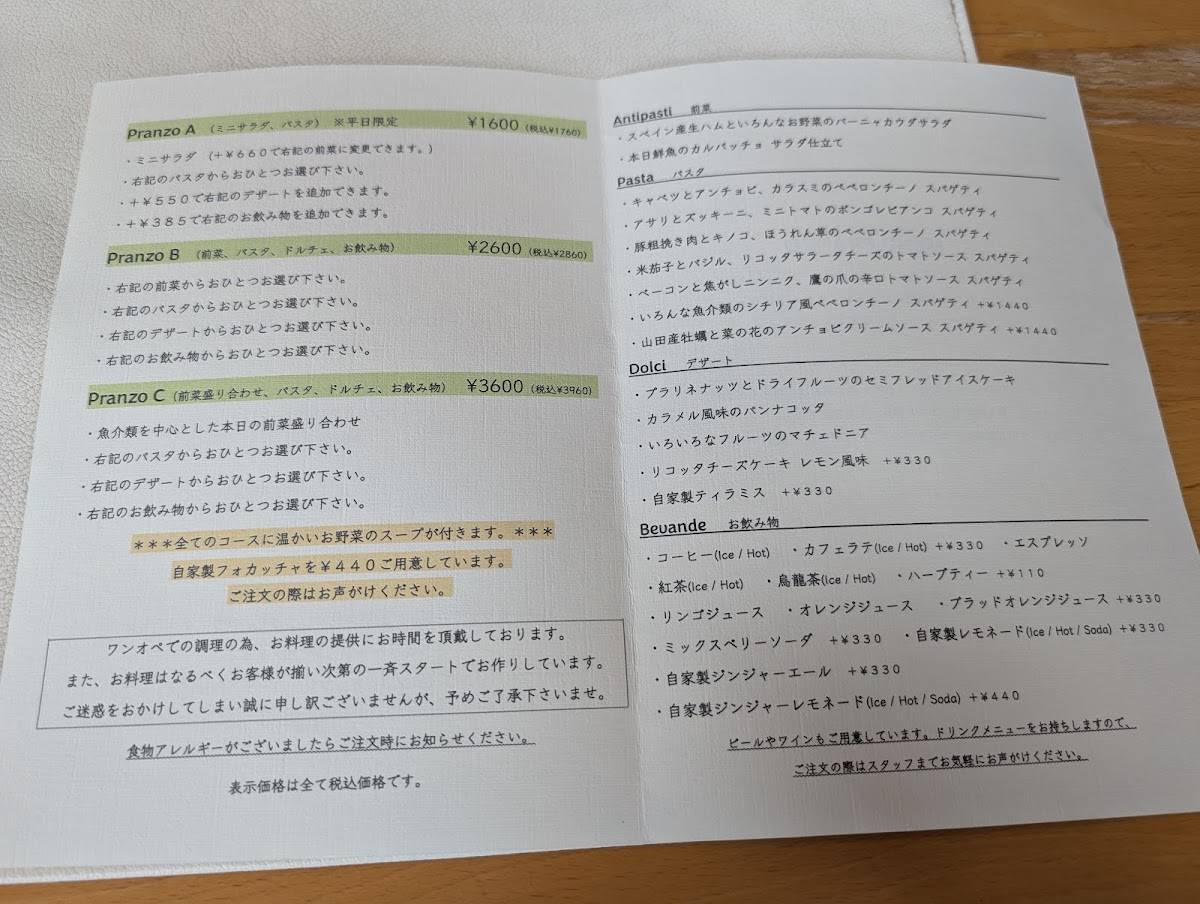 Pranzo A （ミニサラダ、パスタ） ※平日限定 ¥1600（税込¥1760）
・ミニサラダ （＋¥６６０で右記の前菜に変更できます。）
・右記のパスタからおひとつお選び下さい。
・＋¥５５０で右記のデザートを追加できます。
・＋¥３８５で右記のお飲み物を追加できます。
Pranzo B （前菜、パスタ、ドルチェ、お飲み物） ¥2600（税込¥2860）
・右記の前菜からおひとつお選び下さい。
・右記のパスタからおひとつお選び下さい。
・右記のデザートからおひとつお選び下さい。
・右記のお飲み物からおひとつお選び下さい。
Pranzo C（前菜盛り合わせ、パスタ、ドルチェ、お飲み物） ¥3600（税込¥3960）
・魚介類を中心とした本日の前菜盛り合わせ
・右記のパスタからおひとつお選び下さい。
・右記のデザートからおひとつお選び下さい。
・右記のお飲み物からおひとつお選び下さい。
＊＊＊全てのコースに温かいお野菜のスープが付きます。＊＊＊
自家製フォカッチャを¥４４０ご用意しています。
ご注文の際はお声がけください。
ワンオペでの調理の為、お料理の提供にお時間を頂戴しております。
また、お料理はなるべくお客様が揃い次第の一斉スタートでお作りしています。
ご迷惑をおかけしてしまい誠に申し訳ございませんが、予めご了承下さいませ。
食物アレルギーがございましたらご注文時にお知らせください。
表示価格は全て税込価格です。
Antipasti 前菜
・スペイン産生ハムといろんなお野菜のバーニャカウダサラダ
・本日鮮魚のカルパッチョ サラダ仕立て
Pasta パスタ
・キャベツとアンチョビ、カラスミのペペロンチーノ スパゲティ
・アサリとズッキーニ、ミニトマトのボンゴレビアンコ スパゲティ
・豚粗挽き肉とキノコ、ほうれん草のペペロンチーノ スパゲティ
・米茄子とバジル、リコッタサラータチーズのトマトソース スパゲティ
・ベーコンと焦がしニンニク、鷹の爪の辛口トマトソース スパゲティ
・いろんな魚介類のシチリア風ペペロンチーノ スパゲティ ＋¥１４４０
・山田産牡蠣と菜の花のアンチョビクリームソース スパゲティ ＋¥１４４０
Dolci デザート
・プラリネナッツとドライフルーツのセミフレッドアイスケーキ
・カラメル風味のパンナコッタ
・いろいろなフルーツのマチェドニア
・リコッタチーズケーキ レモン風味 ＋¥３３０
・自家製ティラミス ＋¥３３０
Bevande お飲み物
・コーヒー(Ice / Hot) ・カフェラテ(Ice / Hot) ＋¥３３０ ・エスプレッソ
・紅茶(Ice / Hot) ・烏龍茶(Ice / Hot) ・ハーブティー ＋¥１１０
・リンゴジュース ・オレンジジュース ・ブラッドオレンジジュース ＋¥３３０
・ミックスベリーソーダ ＋¥３３０ ・自家製レモネード(Ice / Hot / Soda) ＋¥３３０
・自家製ジンジャーエール ＋¥３３０
・自家製ジンジャーレモネード(Ice / Hot / Soda) ＋¥４４０
ビールやワインもご用意しています。ドリンクメニューをお持ちしますので、
ご注文の際はスタッフまでお気軽にお声がけください。